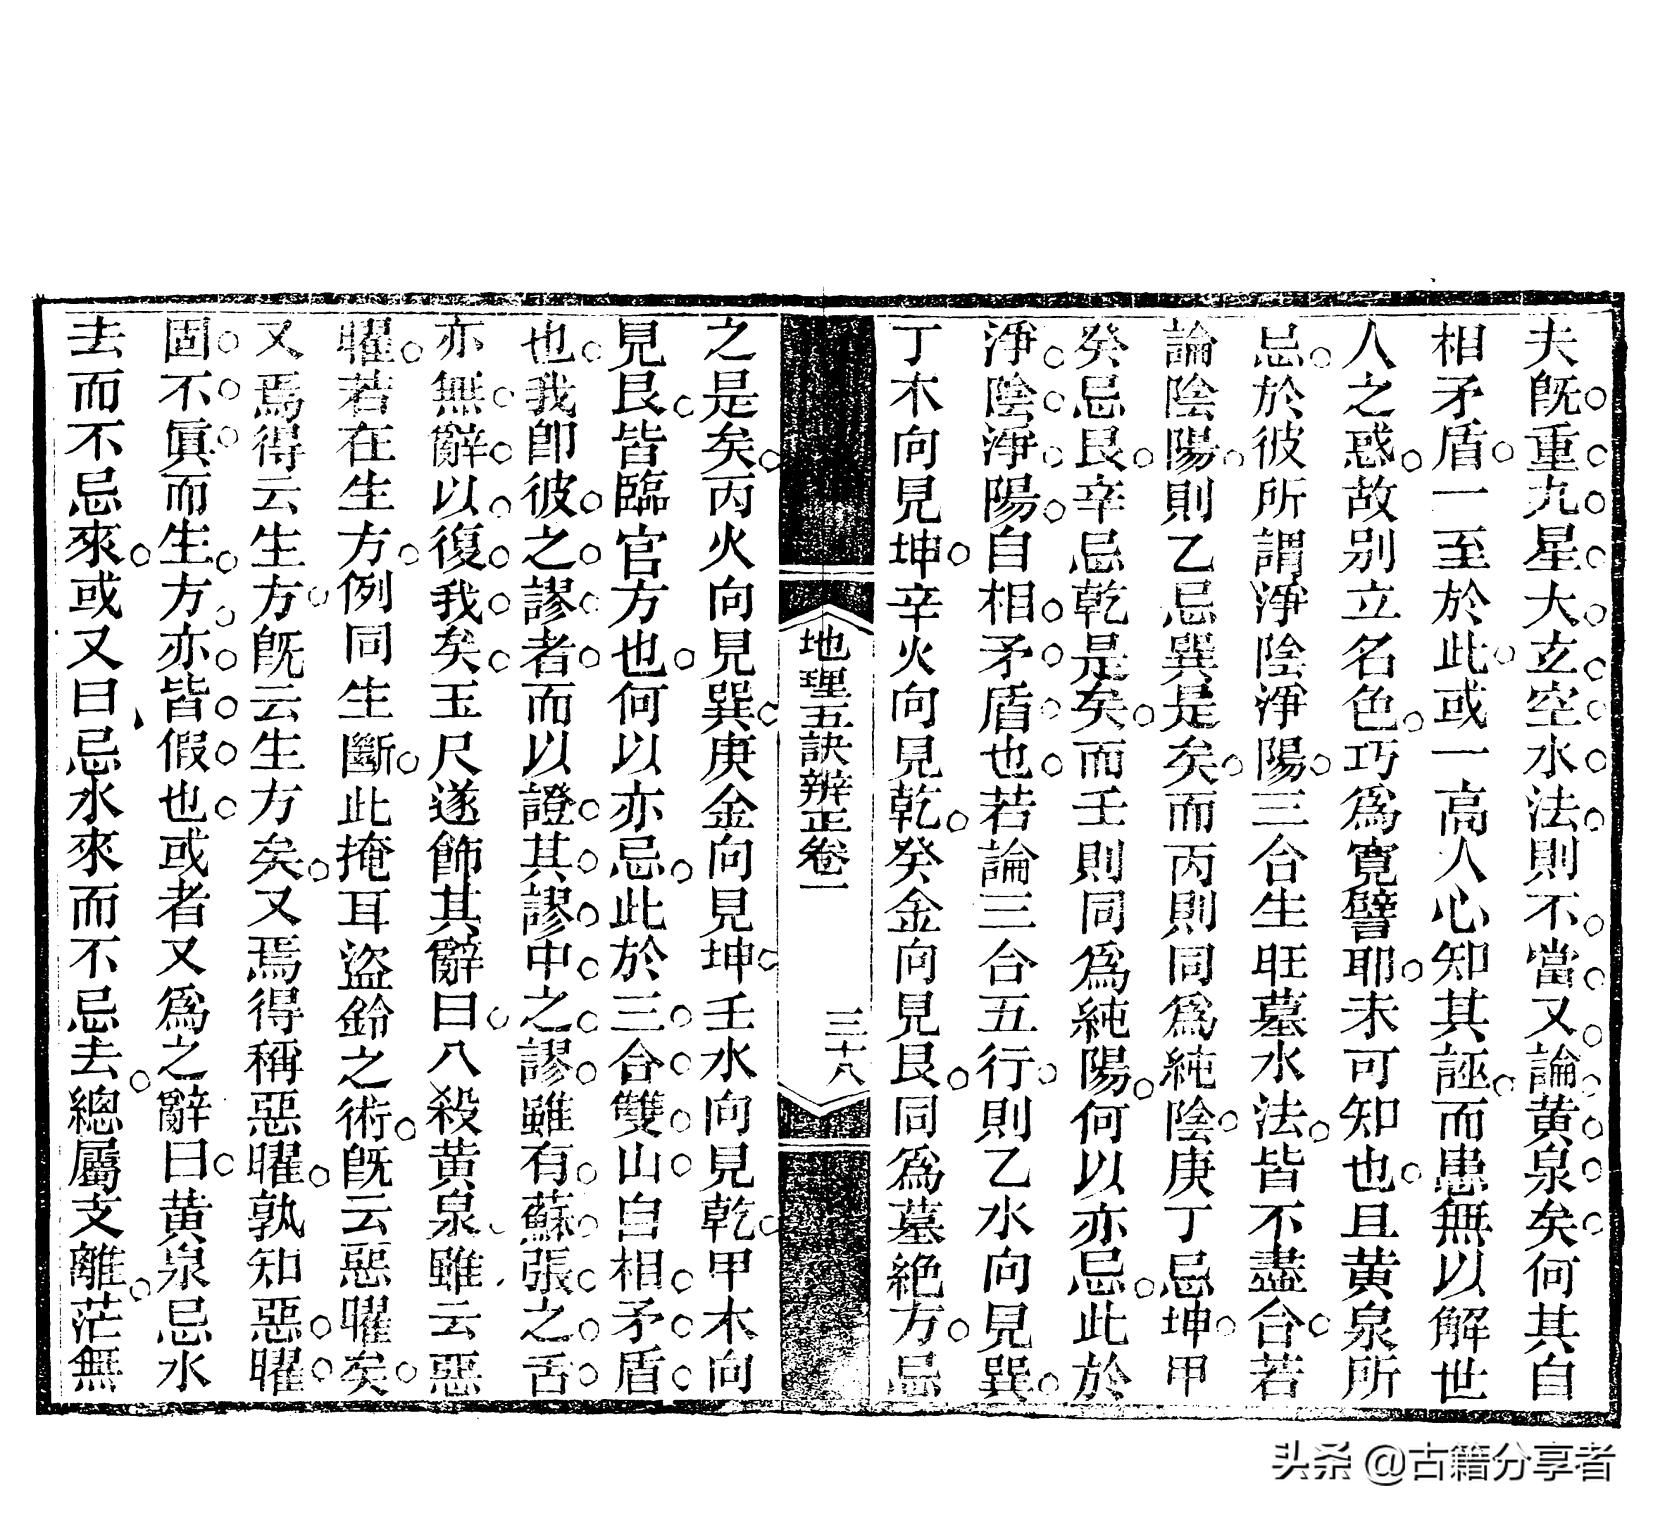 夫旣重九星大玄空水法則不當又論黄泉矣何其自
相矛盾一至於此或一高人心知其誣而患無以解世
人之惑故别立名色巧爲寛譬耶未可知也且黄泉所
忌於彼所謂淨陰淨陽三合生旺墓水法皆不盡合若
論陰陽則乙忌巽是矣而丙則同爲純陰庚丁忌坤甲
癸忌艮辛忌乾是矣而壬則同爲純陽何以亦忌此於
淨陰淨陽自相矛盾也若論三合五行則乙水向見巽
丁木向見坤辛火向見乾癸金向見艮同爲墓絶方忌
地理五訣辨正卷一
三十八
之是矣丙火向見巽庚金向見坤壬水向見乾甲木向
見艮皆臨官方也何以亦忌此於三合雙山自相矛盾
也我卽彼之謬者而以證其謬中之謬雖有蘇張之舌
亦無辭以復我矣玉尺遂飾其辭曰八殺黄泉雖云惡
曜若在生方例同生斷此掩耳盜鈴之術旣云惡曜矣
又焉得云生方旣云生方矣又焉得稱惡曜孰知惡曜
固不眞而生方亦皆假也或者又爲之辭曰黄泉忌水
去而不忌來或又曰忌水來而不忌去總屬支離茫無
头条 @古籍分享者